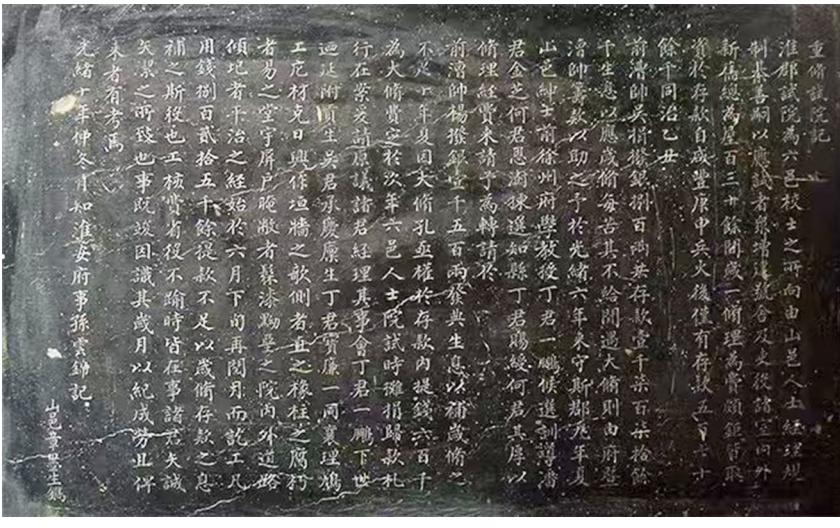 重脩試院記
淮郡試院為六邑校士之所向由山邑人士經理規
制基善嗣以應試者眾增造號舍及吏役諸室內外
新舊總為屋百三十餘間歲一脩理為費頗鉅皆取
資於存款自咸豐庚申兵火後僅有存款五百七十
餘千同治乙丑
前漕帥吳捐撥銀捌百兩共存款壹千柒百柒拾餘
千生息以應歲脩每苦其不給間遇大脩則由府啟
漕帥籌款以助之予於光緒六年來守斯郡九年夏
山邑紳士前徐州府學教授丁君一鵬候選訓導潘
君金芝何君恩澍揀選知縣丁君賜綬何君其厚以
脩理經費來請予為轉請於
前漕帥楊撥銀壹千五百兩發典生息以補歲脩之
不足十年夏因大脩孔亟權於存款內提錢六百千
為大脩費定於次年六邑人士院試時攤捐歸款札
行在案爰請原議諸君經理其事會丁君一鵬下世
迺延附貢生吳君承慶廩生丁君寶廉一同襄理鳩
工庀材克日興作垣牆之欹側者直之椽柱之腐朽
者易之堂宇屏戶晻敝者髹漆黝堊之院內外道路
傾圮者平治之經始於六月下旬再閱月而訖工凡
用錢捌百貳拾五千餘提款不足以歲脩存款之息
補之斯役也工核費省役不踰時皆在事諸君矢誠
矢潔之所致也事既竣因識其歲月以紀成勞且俾
來者有考焉
光緒十年仲冬月知淮安府事孫雲錦記
山邑章學生鐫